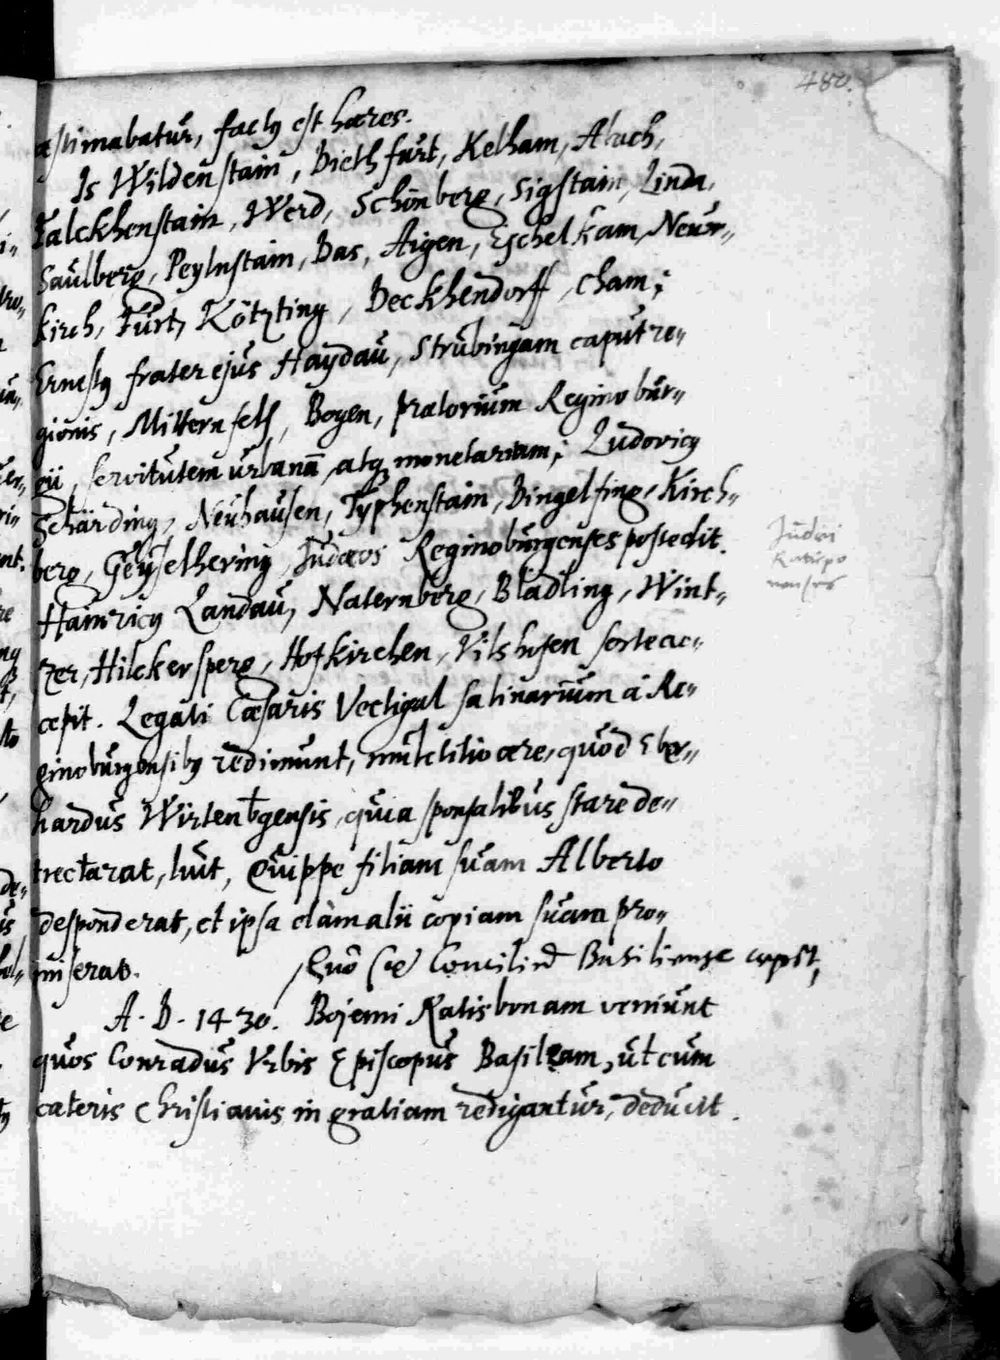 480.
æstimabatur, factꝰ est hæres.
Is Wildenstain, Diethfurt, Kelham, Abach,
Falckhenstain, Werd, Schönberg, Sigstain, Linda,
Saulberg, Peylnstain, Das, Aigen, Eschelkam, Neur-
kirch, Furt, Kötzting, Deckhendorff, Cham;
Ernestꝰ frater ejus Haydau, Strubingam caput re-
gionis, Mitternfels, Bogen, prætorium Reginobur-
gii, servitutem urbanā, atq; monetariam; Ludovicꝰ
Schärding, Neuhausen, Typhenstain, Dingelfing, Kirch-
berg, Geyselhering, Judæos Reginoburgenses possedit.
Hainricꝰ Landau, Naternberg, Bladling, Wint-
zer, Hilckersperg, Hofkirchen, Vilshofen sorte ac-
cepit. Legati Cæsaris Vectigal salinarium à Re-
ginoburgensibꝰ redimunt, mulctitio ære, quod Eber-
hardus Wirtenbgensis, quia sponsalibus stare de-
trectarat, luit, Quippe filiam suam Alberto
desponderat, et ipsa clàm alii copiam suam pro-
miserat.
Concilium Basiliense
A. D. 1430. Bojemi Ratisbonam veniunt
quos Conradus Urbis Episcopus Basileam, ut cum
cæteris Christianis in gratiam redigantur, deducit.
Judæi
Ratispo
nenses